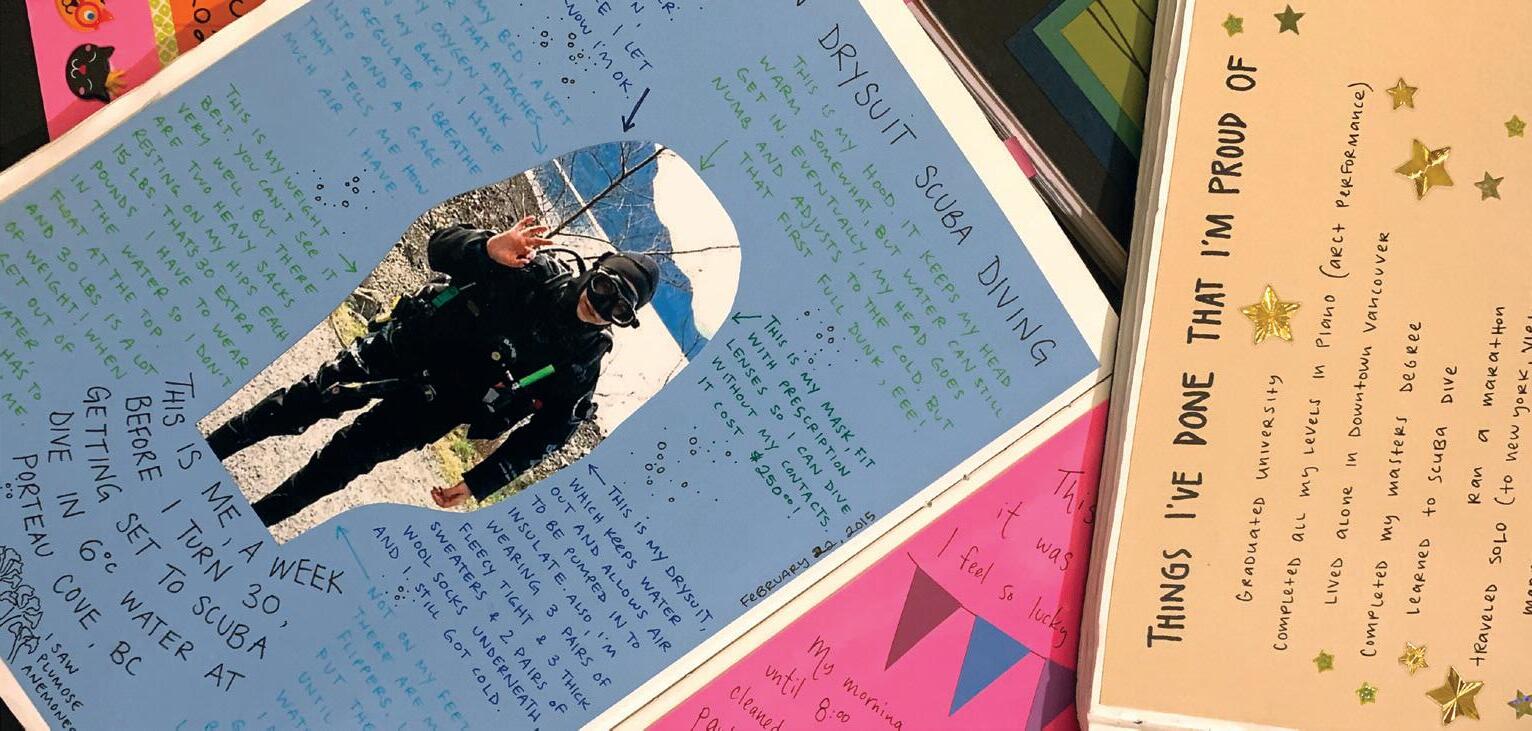 DRYSUIT SCUBA DIVING
I LET
NOW I'M OK.
MY BCD, A VEST
THAT ATTACHES
OXYGEN TANK
ON MY BACK) I HAVE
REGULATOR (BREATHE
INTO AND A GAGE
THAT TELLS ME HOW
MUCH AIR I HAVE
THIS IS MY HOOD. IT KEEPS MY HEAD
WARM SOMEWHAT, BUT WATER CAN STILL
GET IN EVENTUALLY, MY HEAD GOES
NUMB AND ADJUSTS TO THE COLD. BUT
THAT FIRST FULL DUNK, EEE!
THIS IS MY WEIGHT
BELT. YOU CAN'T SEE IT
VERY WELL, BUT THERE
ARE TWO HEAVY SACKS
RESTING ON MY HIPS EACH
15 LBS. THAT'S 30 EXTRA
POUNDS I HAVE TO WEAR
IN THE WATER SO I DON'T
FLOAT AT THE TOP.
AND 30 LBS IS A LOT
OF WEIGHT! WHEN
GET OUT OF
WATER
HAS TO
ME.
THIS IS MY MASK, FIT
WITH PRESCRIPTION
LENSES SO I CAN DIVE
WITHOUT MY CONTACTS.
IT COST $250.00!
THIS IS MY DRYSUIT,
WHICH KEEPS WATER
OUT AND ALLOWS AIR
TO BE PUMPED IN TO
INSULATE. ALSO I'M
WEARING 3 PAIRS OF
FLEECY TIGHT & 3 THICK
SWEATERS & 2 PAIRS OF
WOOL SOCKS UNDERNEATH
AND I STILL GOT COLD.
NOT ON MY FEET
THERE ARE MY
FLIPPERS.
PUT THE
UNTIL
THIS IS ME, A WEEK
BEFORE I TURN 30,
GETTING SET TO SCUBA
DIVE IN 6°C WATER AT
PORTEAU COVE, BC
I SAW
PLUMOSE
ANEMONES
FEBRUARY 22, 2015
This
it was
I feel so lucky
My morning
until 8:00
cleaned
THINGS I'VE DONE THAT I'M PROUD OF
GRADUATED UNIVERSITY
COMPLETED ALL MY LEVELS IN PIANO (ARCT PERFORMANCE)
LIVED ALONE IN DOWNTOWN VANCOUVER
COMPLETED MY MASTERS DEGREE
LEARNED TO SCUBA DIVE
RAN A MARATHON
TRAVELED SOLO (TO NEW YORK,